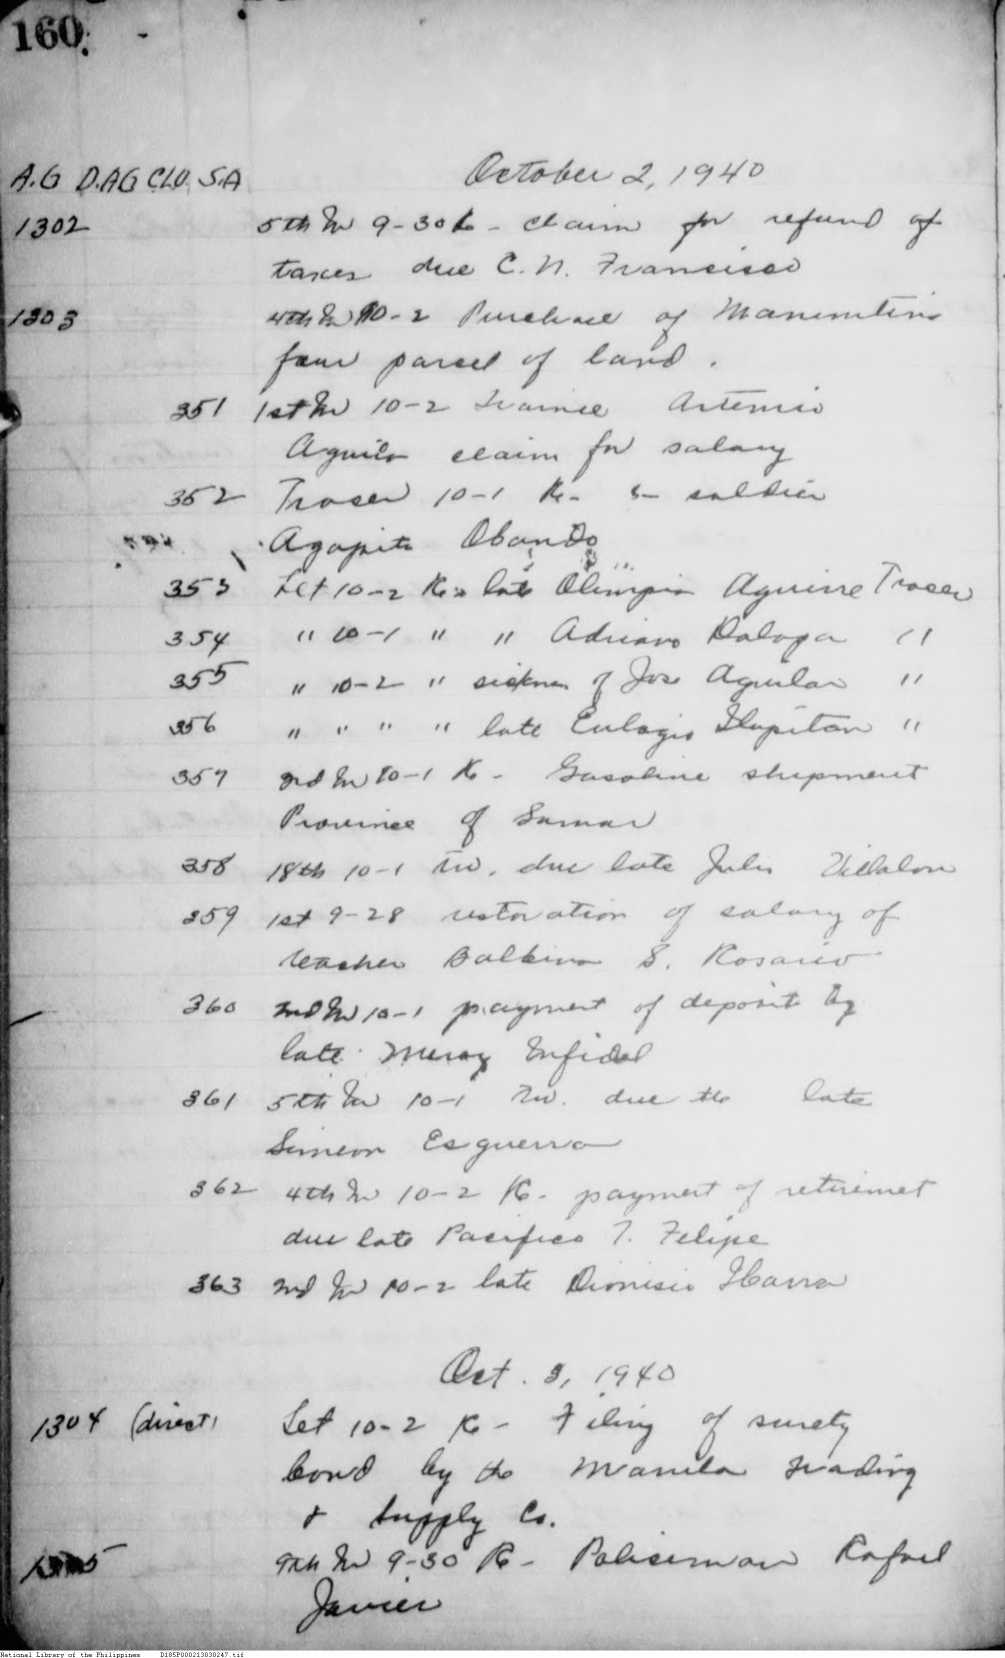 160
A.G D.AG CLU. S.A
October 2, 1940
1302 5th In 9-30 Re - claim for refund of
taxes due C. N. Francisco
1303 4th In 10-2 Purchase of
four parcel of land.
351 1st In 10-2 trainee Artemio
Aguila claim for salary
352 Traser 10-1 Re - s- soldier
Agapito Obando
353 Let 10-2 Re: late Olimpia Aguirre Traser
354 " 10-1 " " Adriano "
355 " 10-2 " sickness of Jose Aguilar "
356 " " " " late Eulogio Ilapitan "
357 2nd In 10-1 Re - Gasoline shipment
Province of Samar
358 18th 10-1 due late Julio Villalon
359 1st 9-28 restoration of salary of
teacher Balbina S. Rosario
360 2nd In 10-1 payment of deposit by
late Infidel
361 5th In 10-1 due the late
Simeon Esguerra
362 4th In 10-2 Re - payment of retiremet
due late Pacifico T. Felipe
363 2nd In 10-2 late Dionisio Ibarra
Oct. 3, 1940
1304 (direct) Let 10-2 Re - Filing of surety
bond by the Manila trading
& Supply Co.
1305 9th In 9-30 Re - Policeman Rafael
Javier
National Library of the Philippines D185P000213030247.tif